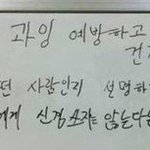 과잉 예방하고
건
떤 사람인지 설명하
에게 신경쓰자는 않는다음